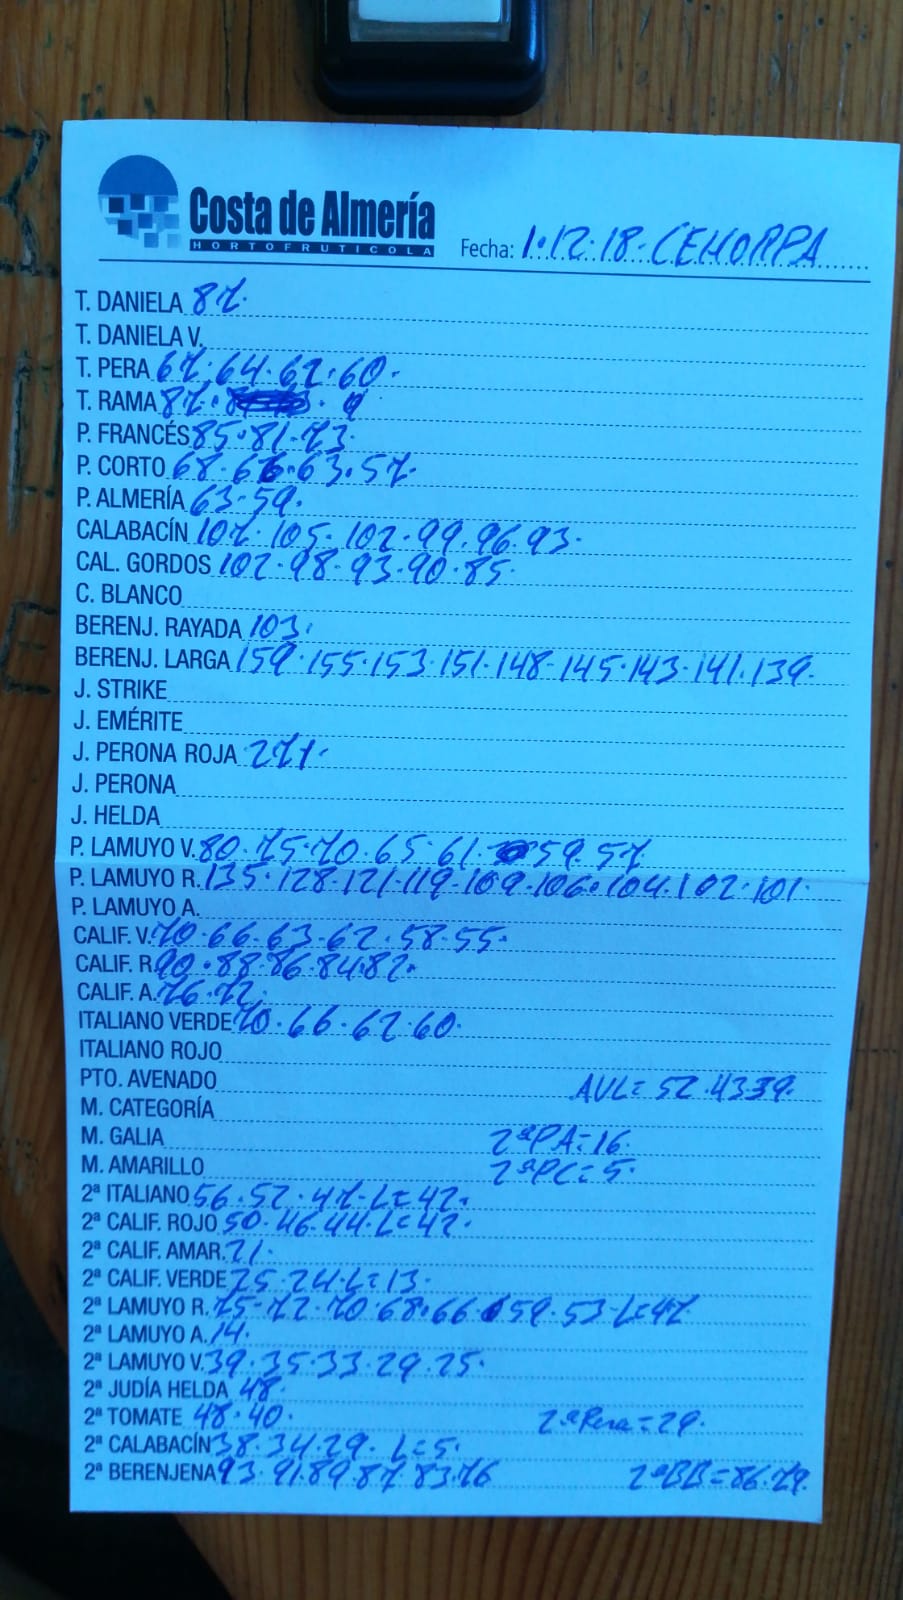 Costa de Almería
HORTOFRUTICOLA
Fecha: 1.12.18. CEHORPA
T. DANIELA 87.
T. DANIELA V.
T. PERA 67. 64. 62. 60.
T. RAMA 87.
P. FRANCÉS 85. 81. 73.
P. CORTO 68. 66. 63. 57.
P. ALMERÍA 63. 59.
CALABACÍN 107. 105. 102. 99. 96. 93.
CAL. GORDOS 102. 98. 93. 90. 85.
C. BLANCO
BERENJ. RAYADA 103.
BERENJ. LARGA 159. 155. 153. 151. 148. 145. 143. 141. 139.
J. STRIKE
J. EMÉRITE
J. PERONA ROJA 271.
J. PERONA
J. HELDA
P. LAMUYO V. 80. 75. 70. 65. 61. 59. 57.
P. LAMUYO R. 135. 128. 121. 119. 109. 106. 104. 102. 101.
P. LAMUYO A.
CALIF. V. 70. 66. 63. 62. 58. 55.
CALIF. R. 90. 88. 86. 84. 82.
CALIF. A. 76. 72.
ITALIANO VERDE 70. 66. 62. 60.
ITALIANO ROJO
PTO. AVENADO AVL= 52. 43 39.
M. CATEGORÍA
M. GALIA 2ª PA= 16.
M. AMARILLO 2ª PC= 5.
2ª ITALIANO 56. 52. 47. L= 42.
2ª CALIF. ROJO 50. 46. 44. L= 42.
2ª CALIF. AMAR. 21.
2ª CALIF. VERDE 25. 24. L= 13.
2ª LAMUYO R. 75. 72. 70. 68. 66. 59. 53. L= 47
2ª LAMUYO A. 14.
2ª LAMUYO V. 39. 35. 33. 29. 25.
2ª JUDÍA HELDA 48.
2ª TOMATE 48. 40. 2ª Pera= 29.
2ª CALABACÍN 38. 34. 29. L= 5.
2ª BERENJENA 93. 91. 89. 87. 83. 76 2ª BB= 86. 79.